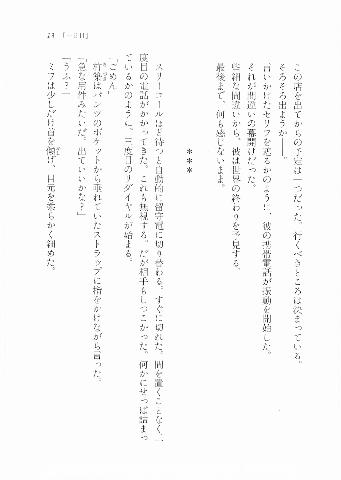 13 「一日目」
この店を出てからの予定は一つだった。行くべきところは決まっている。
そろそろ出ようか――。
言いかけたセリフを遮るかのように、彼の携帯電話が振動を開始した。
それが間違いの幕開けだった。
些細な間違いから、彼は世界の終わりを予見する。
最後まで、何も感じないまま。
***
スリーコールほど待つと自動的に留守電に切り替わる。すぐに切れた。間を置くことなく、二
度目の電話がかかってきた。これも無視する。だが相手もしつこかった。何かにせっぱ詰まっ
ているかのように、三度目のリダイヤルが始まる。
「ごめん」
はパンツのポケットから垂れていたストラップに指をかけながら言った。
「急な用件みたいだ。出ていいかな?」
「うふ?」
ミフは少しだけ首を傾げ、目元を柔らかく細めた。